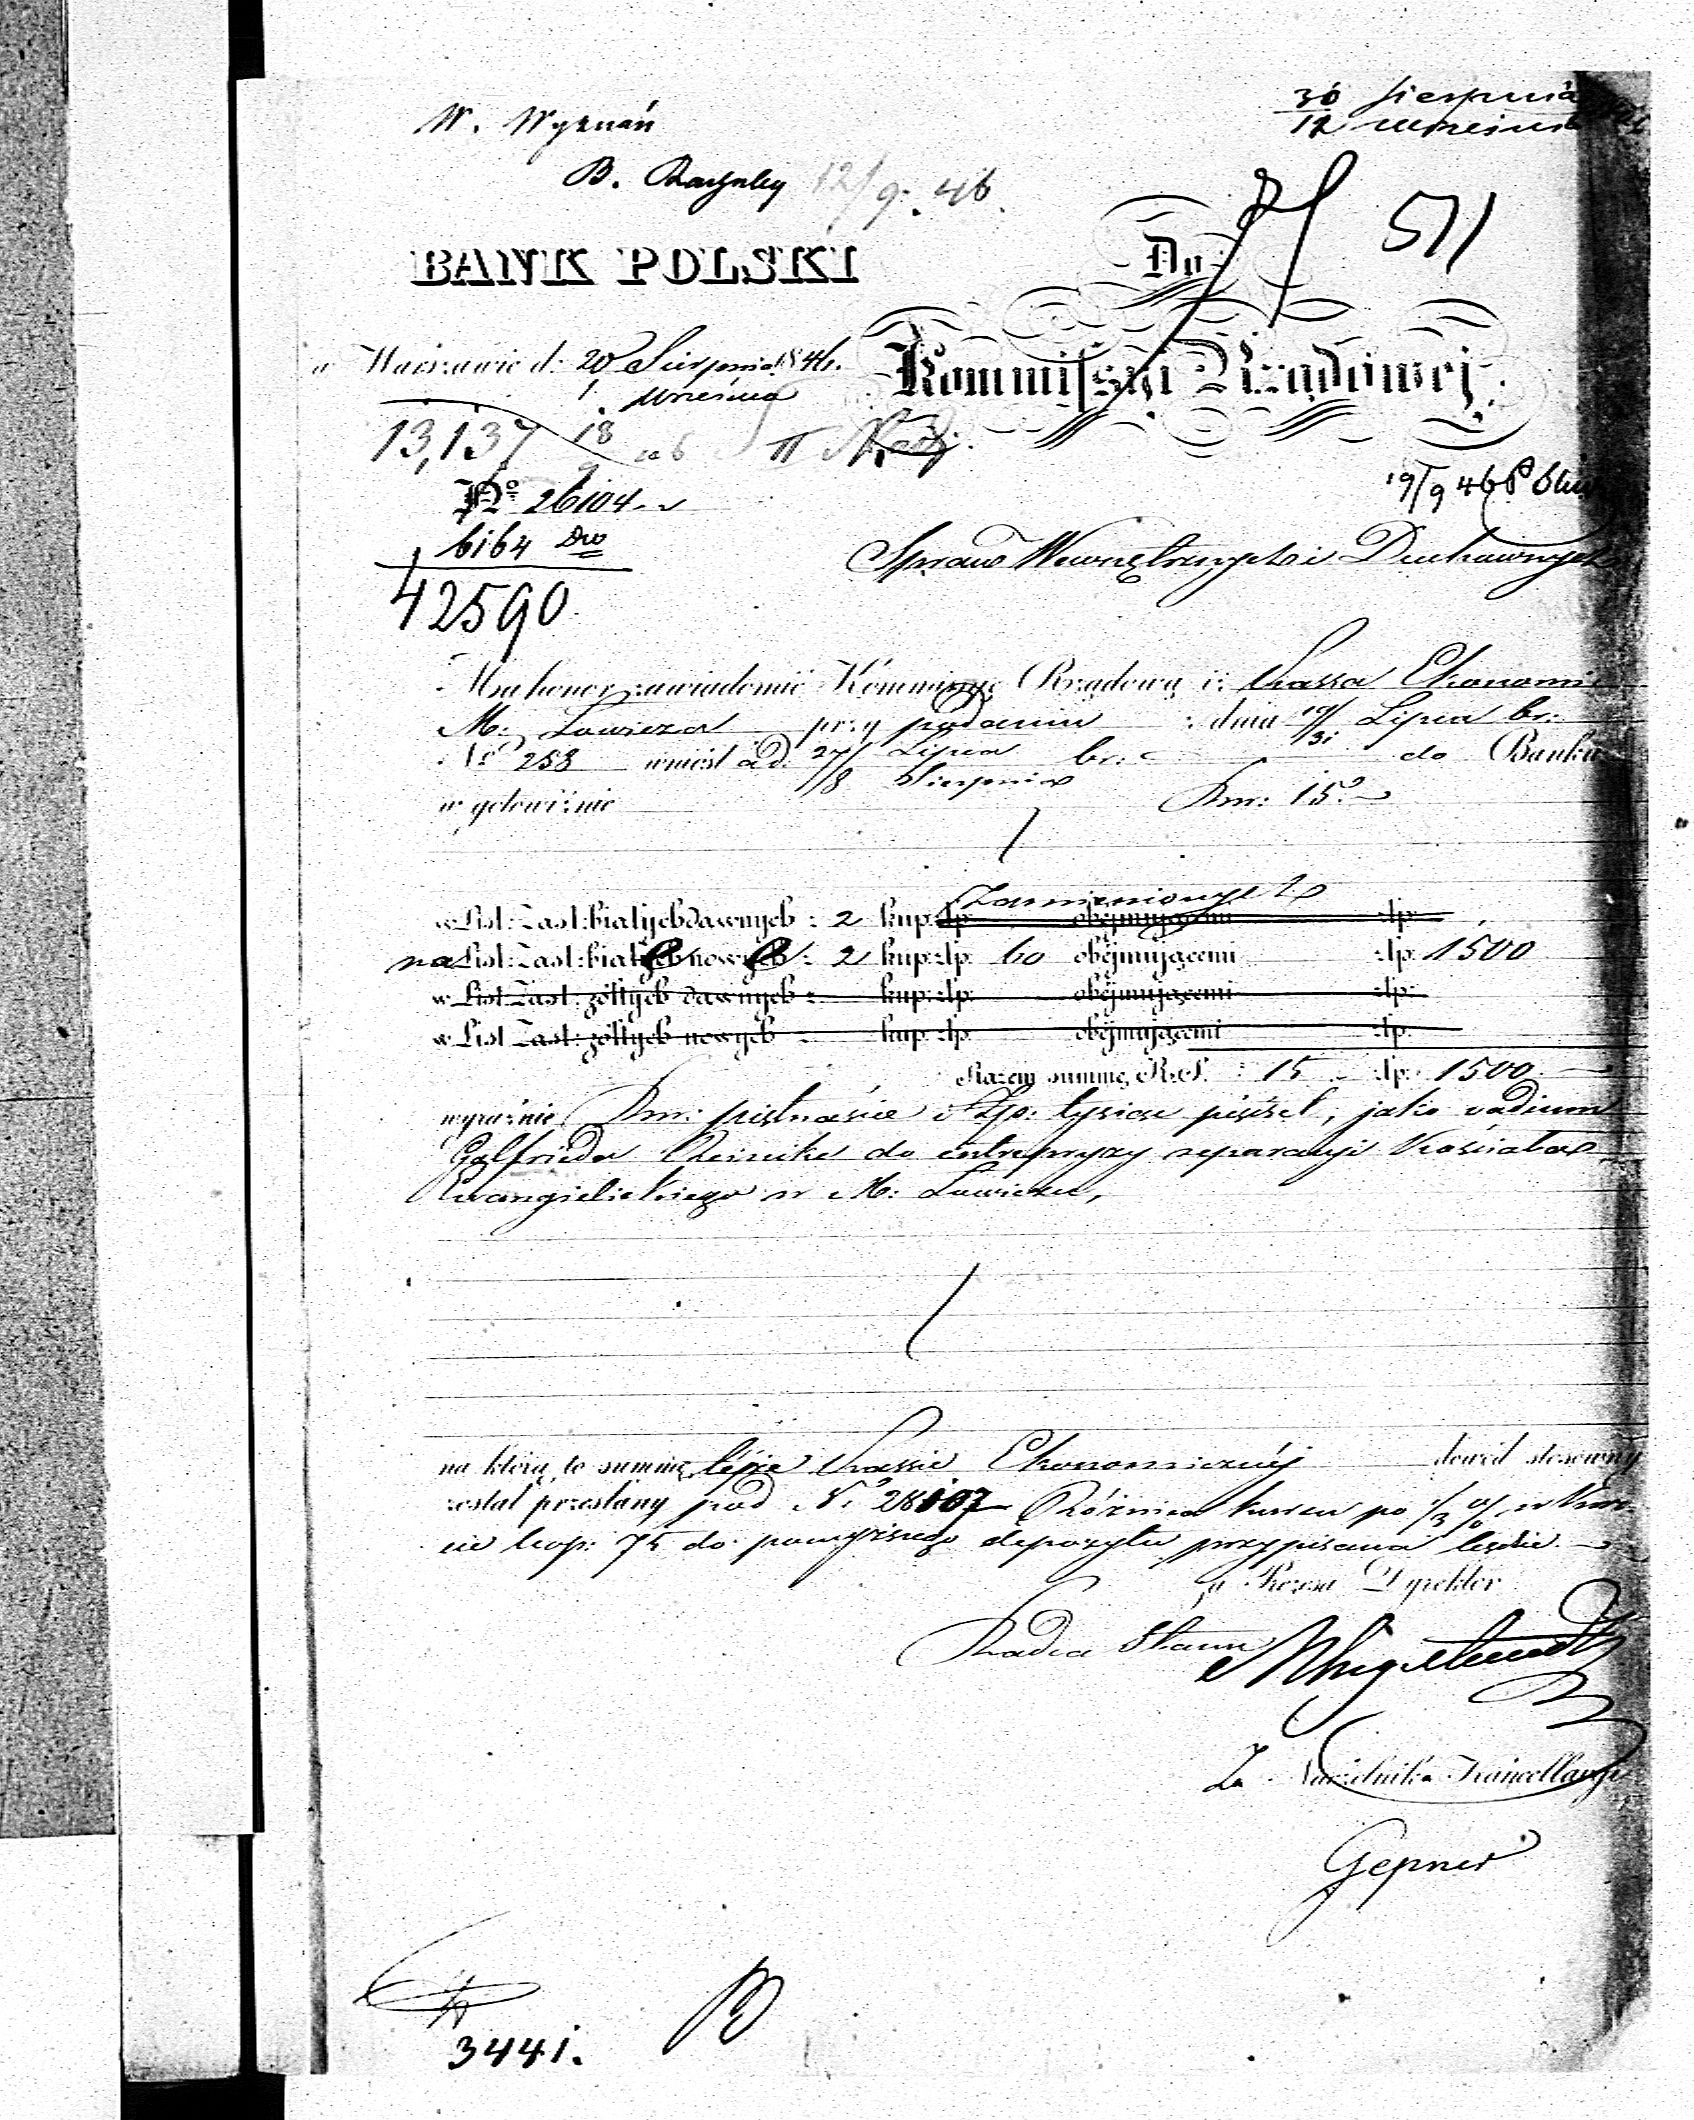 W. Wyznań
30 Sierpnia
12 Września
B. 12/9. 46.
511
BANK POLSKI
Do
Kommissyi Rządowej
w Warszawie d: 20 Sierpnia 1846.
1 Września
13,137 18/9 46 II
19/9 46
No 26104
6164 Dwo
42590
Spraw Wewnętrznych i Duchownych
Ma honor zawiadomić Kommissyę Rządową iż Kassa Ekonomi
M. Łowicza przy podaniu z dnia 19/31 Lipca br:
No 258 wniósł a d. 27/8 Lipca br: do Banku
Sierpnia
w gotowiźnie Rsr: 15.
Zamienionych
w List: Zast: białych dawnych z 2 kup: złp: obejmującemi złp:
na List: Zast: białe nowe z 2 kup: złp: 60 obejmującemi złp: 1500
w List: Zast: żółtych dawnych z kup: złp: obejmującemi złp:
w List: Zast: żółtych nowych z kup: złp: obejmującemi złp:
Razem summę R.S. 15 złp: 1500.
wyraźnie Rsr: piętnaście i Złp: tysiąc pięćset, jako vadium
Gotfrieda Reinike do entrepryzy reparacyi Kościoła
Ewangielickiego w M: Łowiczu,
na którą to summę tejże Kassie Ekonomicznéj dowód stosowny
został przesłany pod No 28107 Różnica kursu po 1/3 % w kwo-
cie kop: 75 do powyższego depozytu przypisana będzie.
za Prezesa Dyrektor
Radca Stanu
Za Naczelnika Kancellaryi
Gepner
3441.